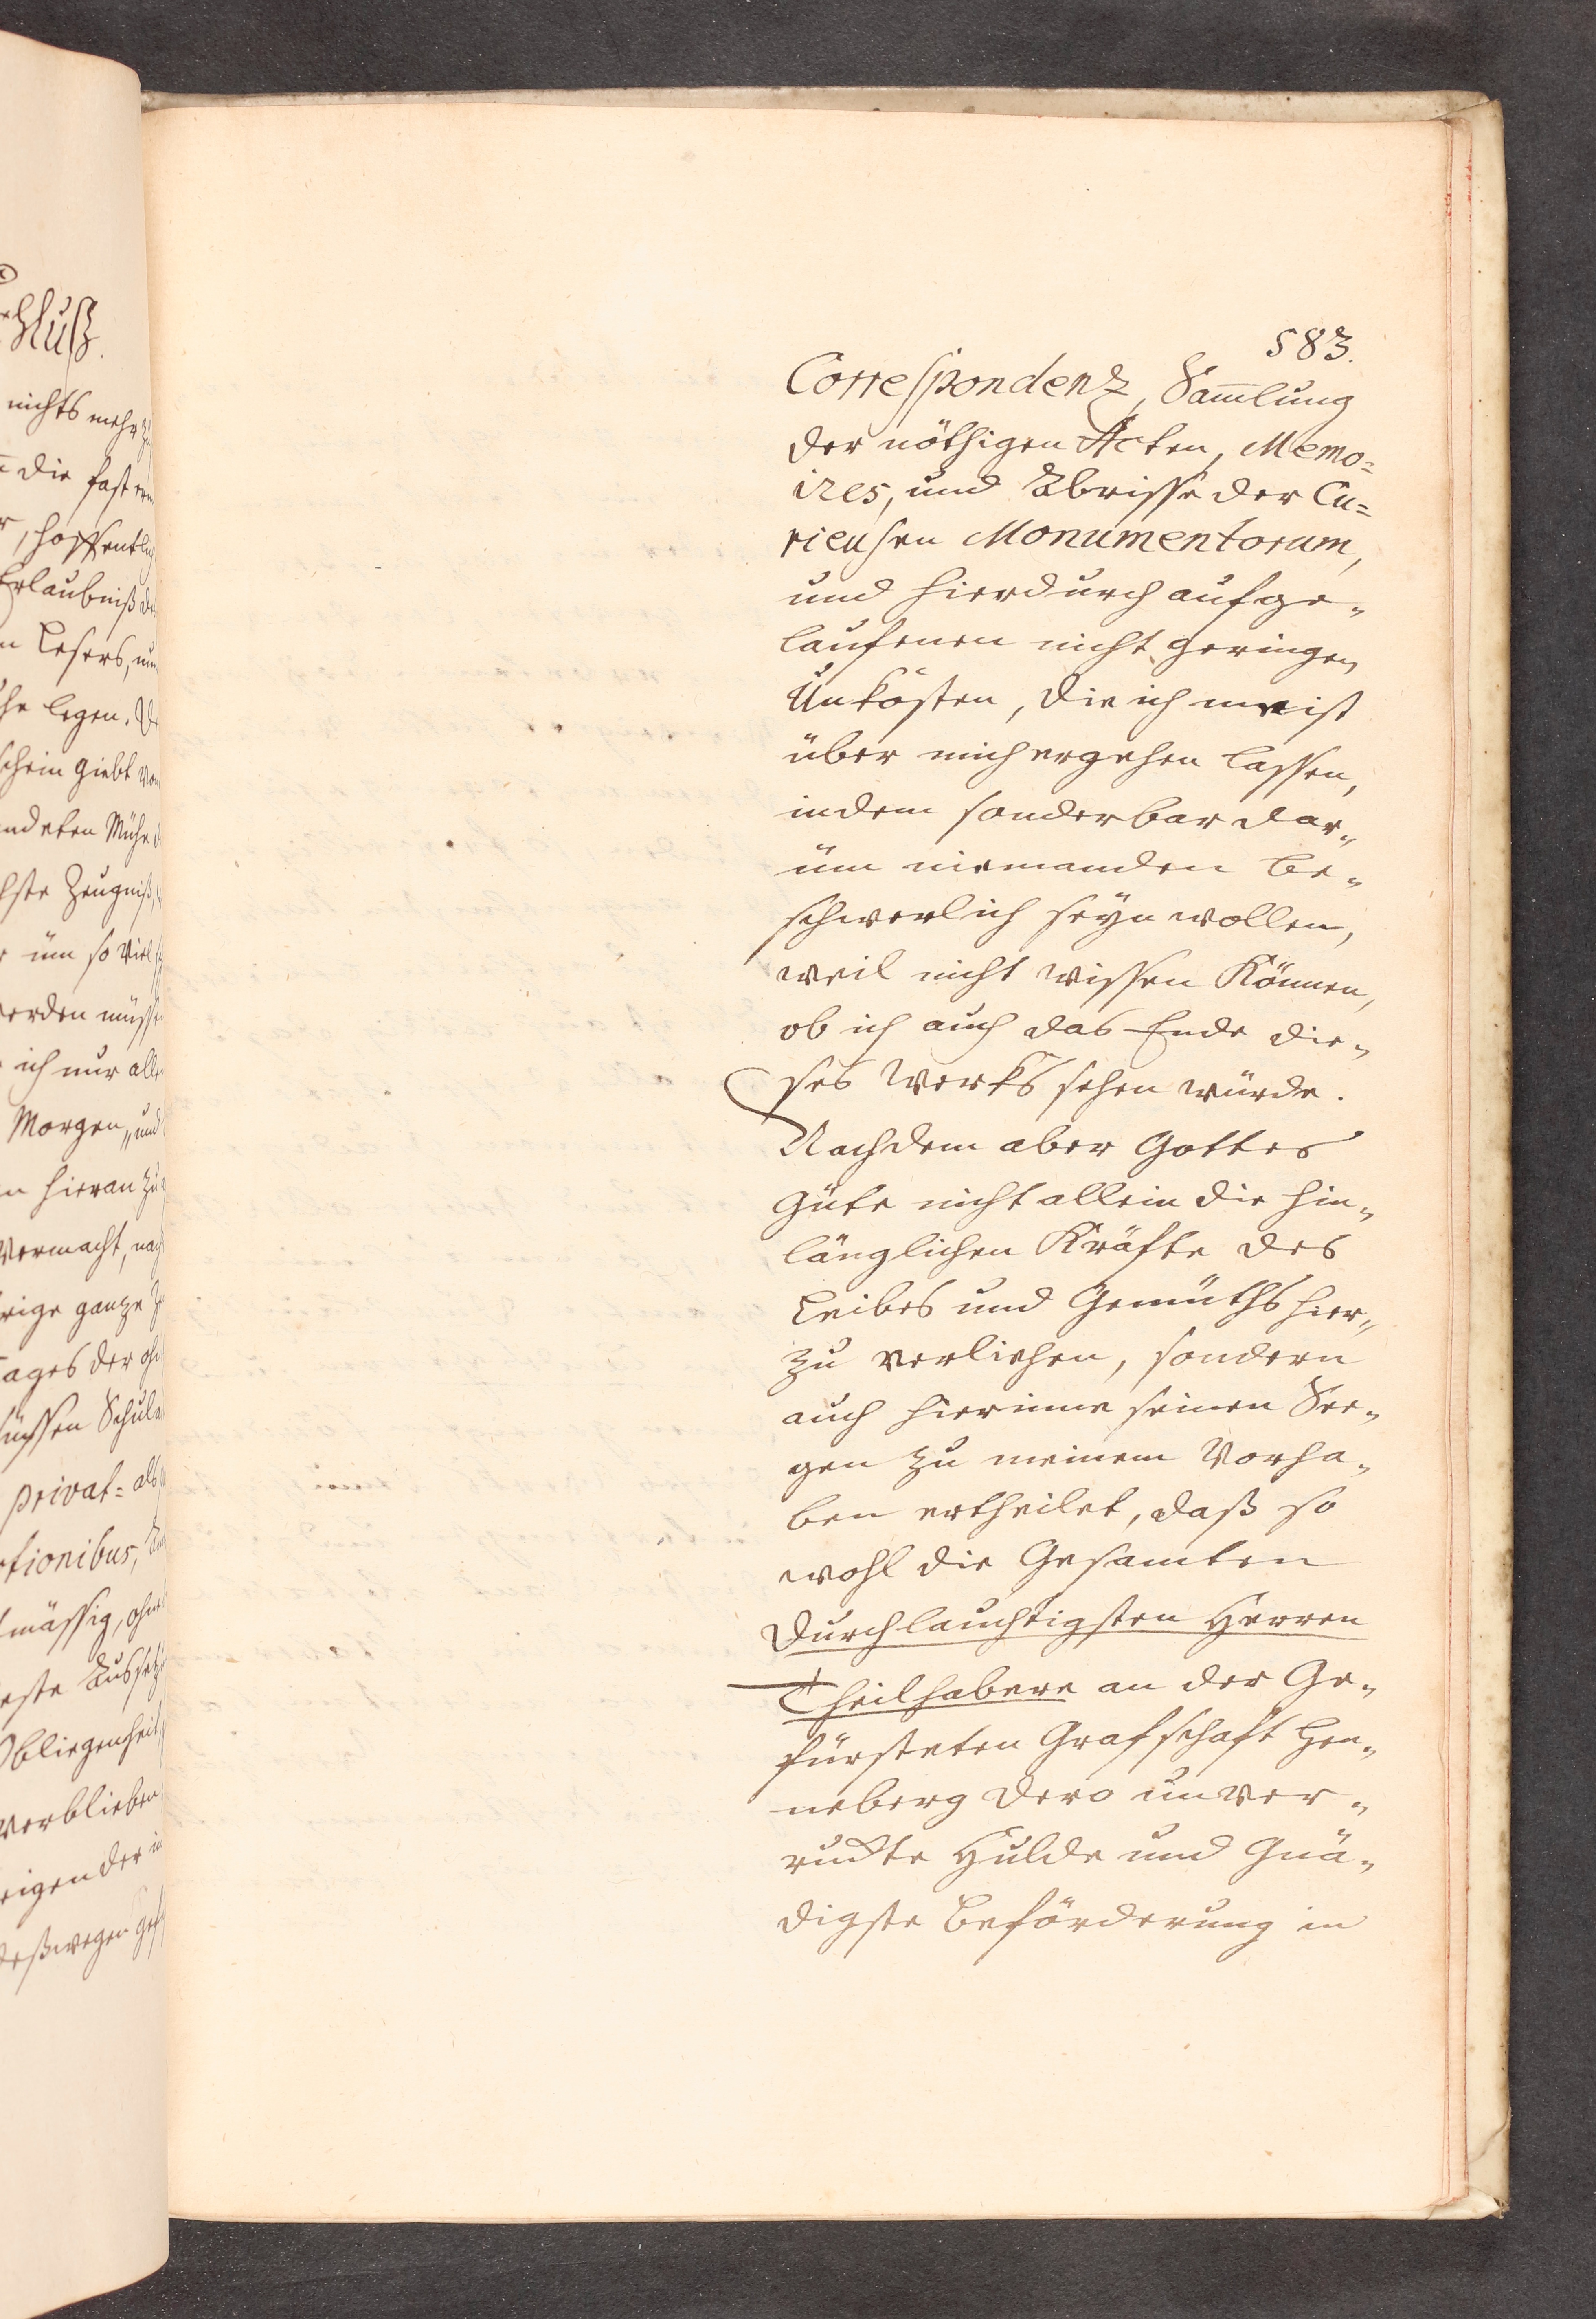 chluß.
nichts mehr zu
die fast
, hoffentlich
Erlaubniß der
Lesers, nun
legen.
schein giebt von
Mühe
Zeugniß,
um so viel
werden müssen
ich nur alle
Morgen, und
hieran zu
vermacht, nach
ganze
Tages der
Schul
privat= als
tionibus,
mässig, ohne
Obliegenheit
verblieben
der in
deßwegen
583.
Correspondenz, Sam̅lung
der nöthigen Acten, Memo=
ires, und Abrisse der Cu=
rieusen Monumentorum,
und hierdurch aufge=
laufenen nicht geringen
Unkösten, die ich meist
über mich ergehen lassen,
indem sonderbar dar=
üm niemanden be=
schwerlich seyn wollen,
weil nicht wissen können,
ob ich auch das Ende die=
ses Werks sehen würde.
Nachdem aber Gottes
Güte nicht allein die hin=
länglichen Kräfte des
Leibes und Gemüths hier=
zu verliehen, sondern
auch hierinne seinen See=
gen zu meinem Vorha=
ben ertheilet, daß so
wohl die Gesamten
Durchlauchtigsten Herren
Theilhabere an der Ge=
fürsteten Grafschaft Hen=
neberg dero unver=
ruckte Hulde und Gnä=
digste Beförderung in